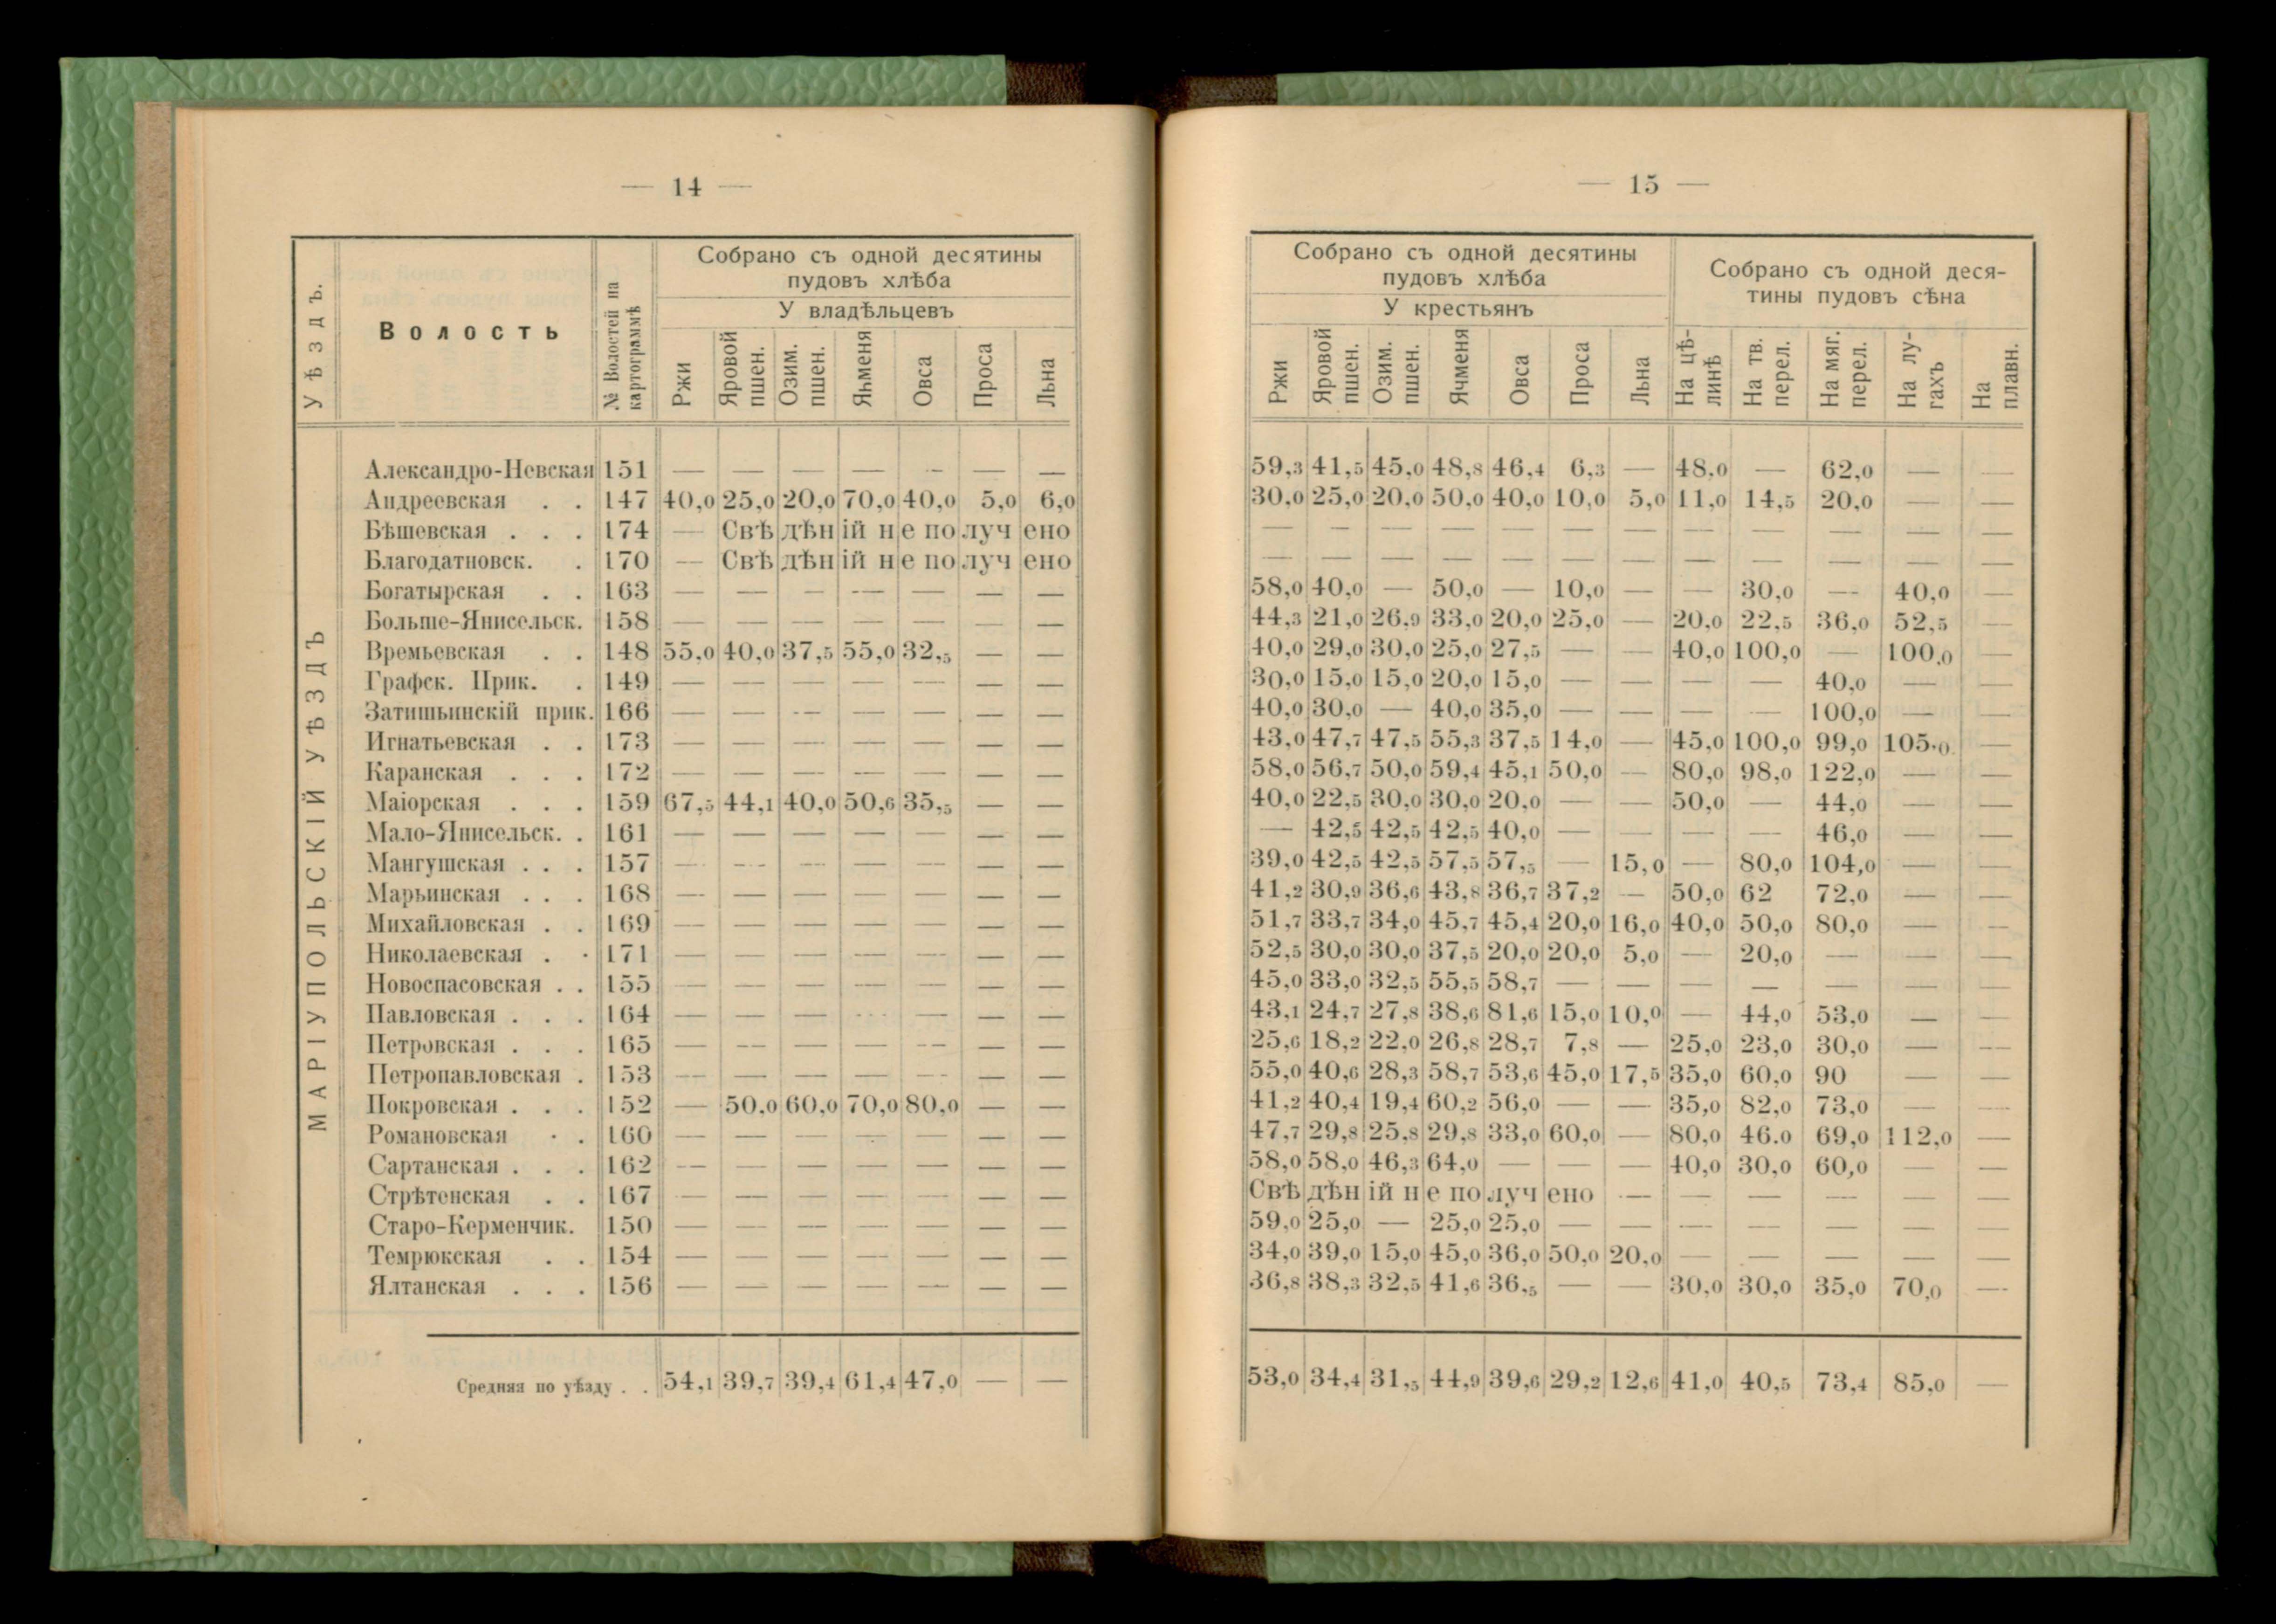 — 14 —
Уѣздъ.
Волость
№ Волостей на картограммѣ
Собрано съ одной десятины
пудовъ хлѣба
У владѣльцевъ
Ржи
Яровой пшен.
Озим. пшен.
Яьменя
Овса
Проса
Льна
МАРІУПОЛЬСКІЙ УѢЗДЪ
Александро-Невская 151 — — — — — — —
Андреевская . . 147 40,0 25,0 20,0 70,0 40,0 5,0 6,0
Бѣшевская . . . 174 — Свѣдѣній не получено
Благодатновск. . 170 — Свѣдѣній не получено
Богатырская . . 163 — — — — — — —
Больше-Янисельск. 158 — — — — — — —
Времьевская . . 148 55,0 40,0 37,5 55,0 32,5 — —
Графск. Прик. . 149 — — — — — — —
Затишьинскій прик. 166 — — — — — — —
Игнатьевская . . 173 — — — — — — —
Каранская . . . 172 — — — — — — —
Маіорская . . . 159 67,5 44,1 40,0 50,6 35,5 — —
Мало-Янисельск. . 161 — — — — — — —
Мангушская . . . 157 — — — — — — —
Марьинская . . . 168 — — — — — — —
Михайловская . . 169 — — — — — — —
Николаевская . . 171 — — — — — — —
Новоспасовская . . 155 — — — — — — —
Павловская . . . 164 — — — — — — —
Петровская . . . 165 — — — — — — —
Петропавловская . 153 — — — — — — —
Покровская . . . 152 — 50,0 60,0 70,0 80,0 — —
Романовская . . 160 — — — — — — —
Сартанская . . . 162 — — — — — — —
Стрѣтенская . . 167 — — — — — — —
Старо-Керменчик. 150 — — — — — — —
Темрюкская . . 154 — — — — — — —
Ялтанская . . . 156 — — — — — — —
Средняя по уѣзду . . 54,1 39,7 39,4 61,4 47,0 — —
— 15 —
Собрано съ одной десятины
пудовъ хлѣба
У крестьянъ
Собрано съ одной деся-
тины пудовъ сѣна
Ржи
Яровой пшен.
Озим. пшен.
Ячменя
Овса
Проса
Льна
На цѣ-
линѣ
На тв. перел.
На мяг. перел.
На лу-
гахъ
На плавн.
59,3 41,5 45,0 48,8 46,4 6,3 — 48,0 — 62,0 — —
30,0 25,0 20,0 50,0 40,0 10,0 5,0 11,0 14,5 20,0 — —
— — — — — — — — — — — —
— — — — — — — — — — — —
58,0 40,0 — 50,0 — 10,0 — — 30,0 — 40,0 —
44,3 21,0 26,9 33,0 20,0 25,0 — 20,0 22,5 36,0 52,5 —
40,0 29,0 30,0 25,0 27,5 — — 40,0 100,0 — 100,0 —
30,0 15,0 15,0 20,0 15,0 — — — — 40,0 — —
40,0 30,0 — 40,0 35,0 — — — — 100,0 — —
43,0 47,7 47,5 55,3 37,5 14,0 — 45,0 100,0 99,0 105,0 —
58,0 56,7 50,0 59,4 45,1 50,0 — 80,0 98,0 122,0 — —
40,0 22,5 30,0 30,0 20,0 — — 50,0 — 44,0 — —
— 42,5 42,5 42,5 40,0 — — — — 46,0 — —
39,0 42,5 42,5 57,5 57,5 — 15,0 — 80,0 104,0 — —
41,2 30,9 36,6 43,8 36,7 37,2 — 50,0 62 72,0 — —
51,7 33,7 34,0 45,7 45,4 20,0 16,0 40,0 50,0 80,0 — —
52,5 30,0 30,0 37,5 20,0 20,0 5,0 — 20,0 — — —
45,0 33,0 32,5 55,5 58,7 — — — — — — —
43,1 24,7 27,8 38,6 81,6 15,0 10,0 — 44,0 53,0 — —
25,6 18,2 22,0 26,8 28,7 7,8 — 25,0 23,0 30,0 — —
55,0 40,6 28,3 58,7 53,6 45,0 17,5 35,0 60,0 90 — —
41,2 40,4 19,4 60,2 56,0 — — 35,0 82,0 73,0 — —
47,7 29,8 25,8 29,8 33,0 60,0 — 80,0 46.0 69,0 112,0 —
58,0 58,0 46,3 64,0 — — — 40,0 30,0 60,0 — —
Свѣдѣній не получено — — — — — —
59,0 25,0 — 25,0 25,0 — — — — — — —
34,0 39,0 15,0 45,0 36,0 50,0 20,0 — — — — —
36,8 38,3 32,5 41,6 36,5 — — 30,0 30,0 35,0 70,0 —
53,0 34,4 31,5 44,9 39,6 29,2 12,6 41,0 40,5 73,4 85,0 —